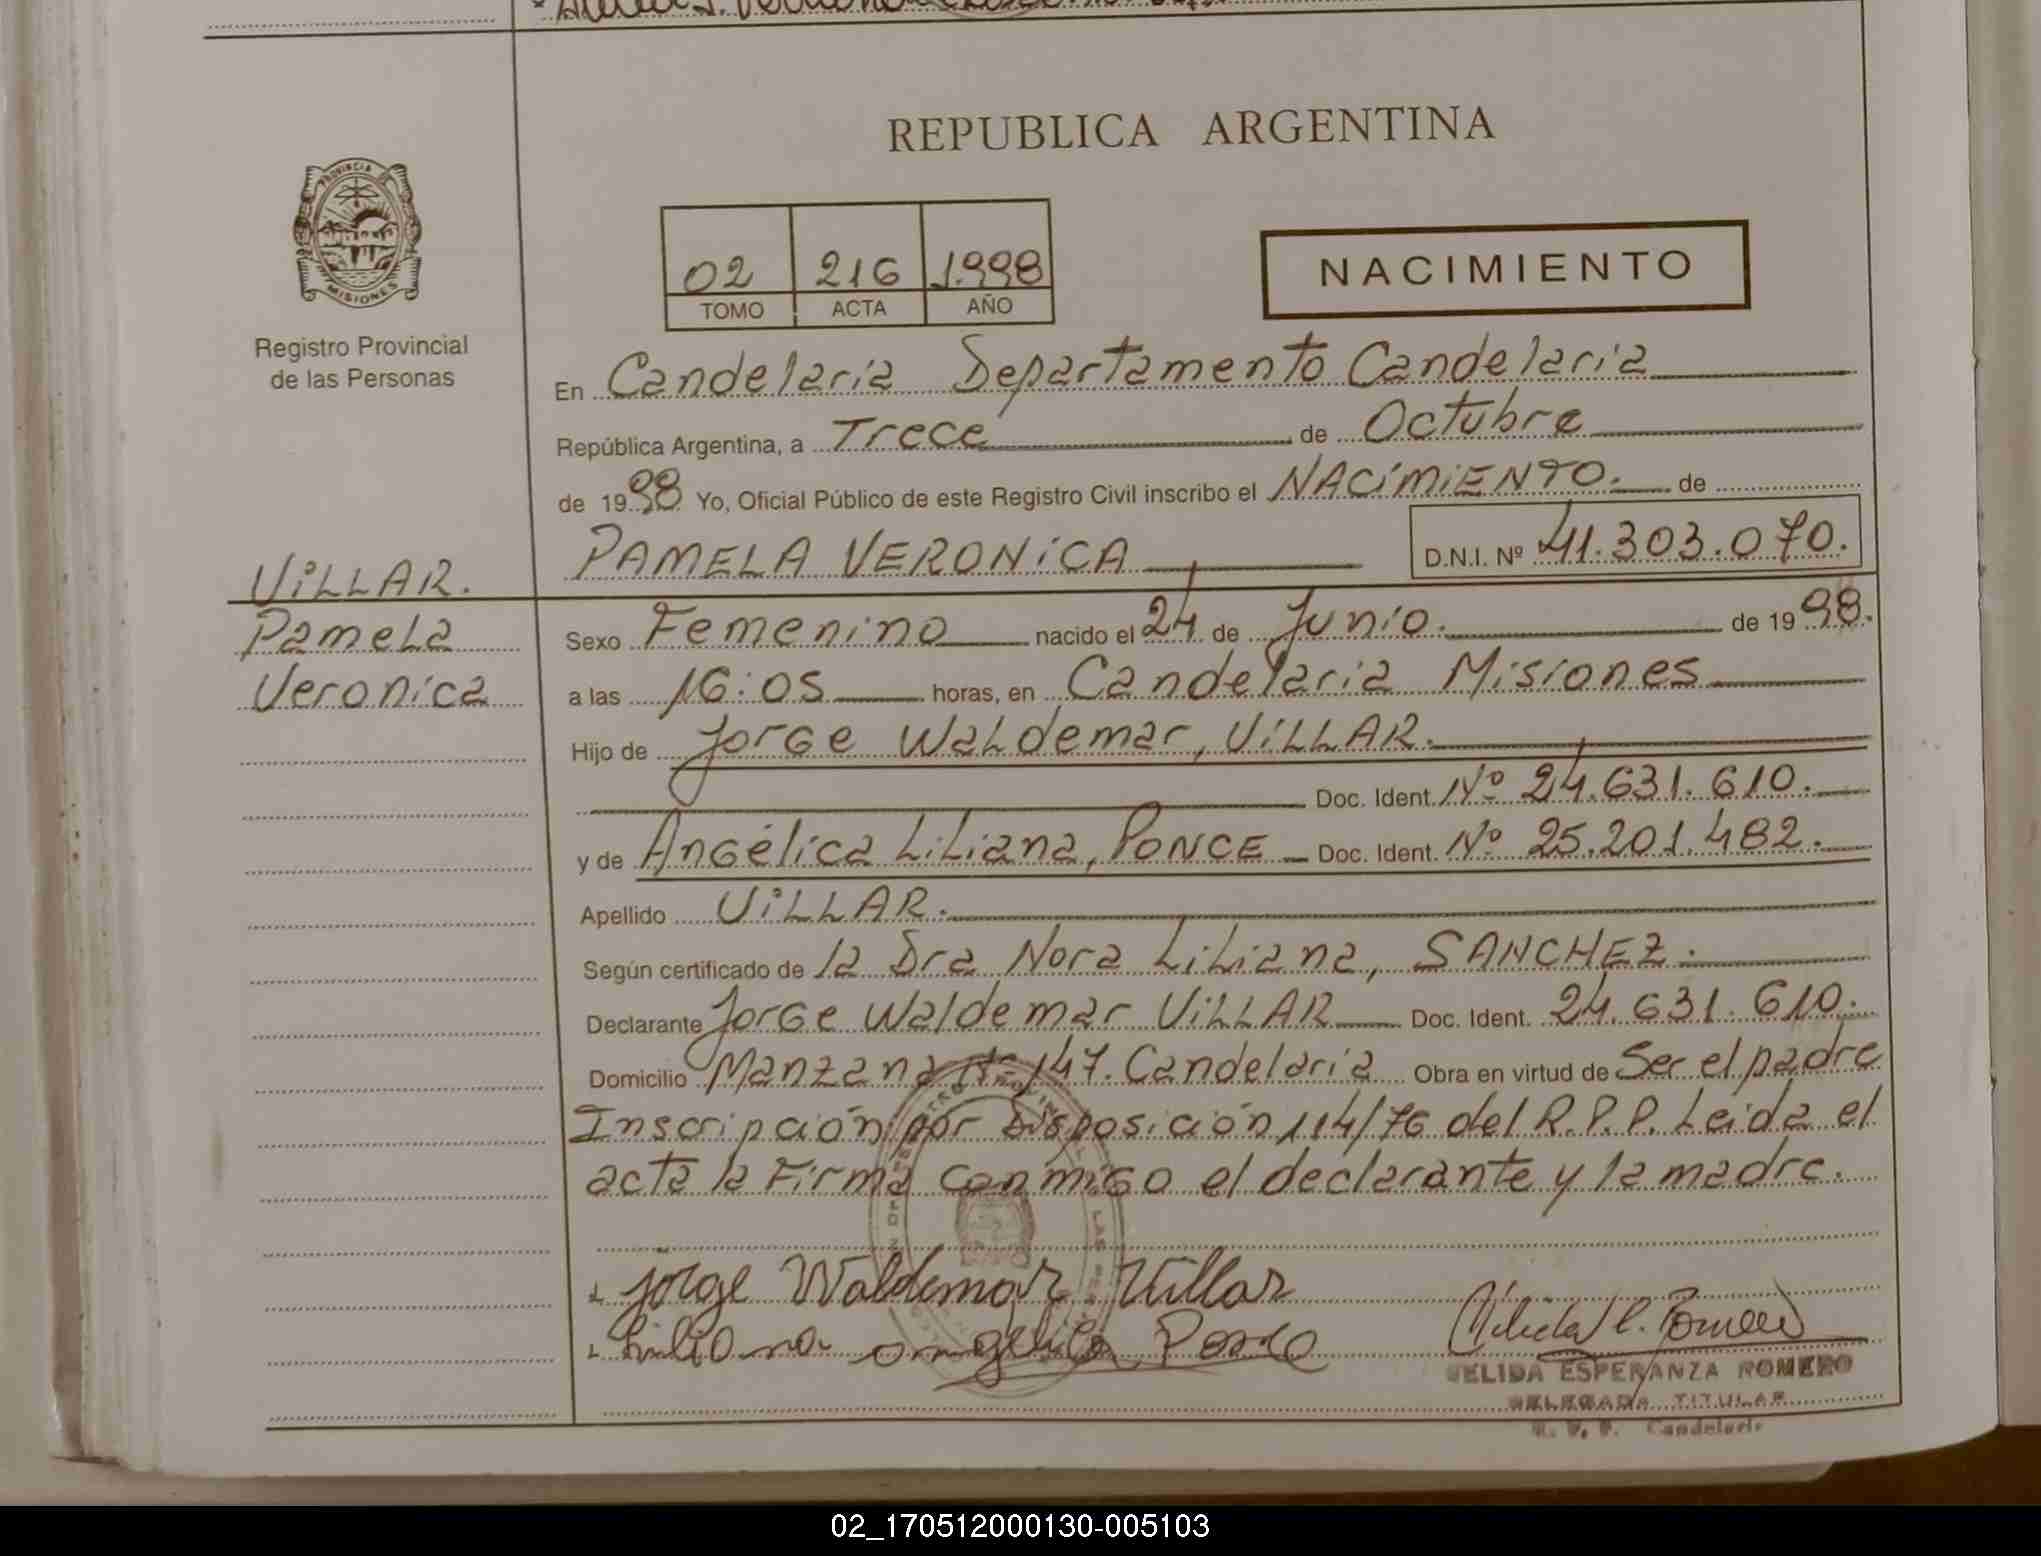 REPUBLICA ARGENTINA
PROVINCIA DE
MISIONES
Registro Provincial
de las Personas
02 216 1.998
TOMO ACTA AÑO
NACIMIENTO
En Candelaria Departamento Candelaria
República Argentina, a Trece de Octubre
de 1998 Yo, Oficial Público de este Registro Civil inscribo el NACIMIENTO. de
PAMELA VERONICA D.N.I. Nº 41.303.070.
VILLAR.
Pamela
Veronica
Sexo Femenino nacido el 24 de Junio. de 1998.
a las 16:05 horas, en Candelaria Misiones
Hijo de Jorge Waldemar, VILLAR.
Doc. Ident. Nº 24.631.610.
y de Angélica Liliana, PONCE Doc. Ident. Nº 25.201.482.
Apellido VILLAR.
Según certificado de la Dra Nora Liliana, SANCHEZ.
Declarante Jorge Waldemar VILLAR Doc. Ident. 24.631.610.
Domicilio Manzana Nº 147. Candelaria Obra en virtud de Ser el padre
Inscripción por Disposición 114/76 del R.P.P. Leida el
acta la Firma conmigo el declarante y la madre.
Jorge Waldemar Villar
Liliana angelica Ponce
ELIDA ESPERANZA ROMERO
DELEGADA TITULAR
R. P. P. Candelaria
02_170512000130-005103